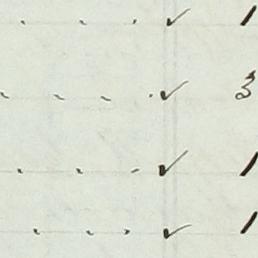 " " " ✓ 1
" " " ✓ 3
" " " ✓ 1
" " " ✓ 1